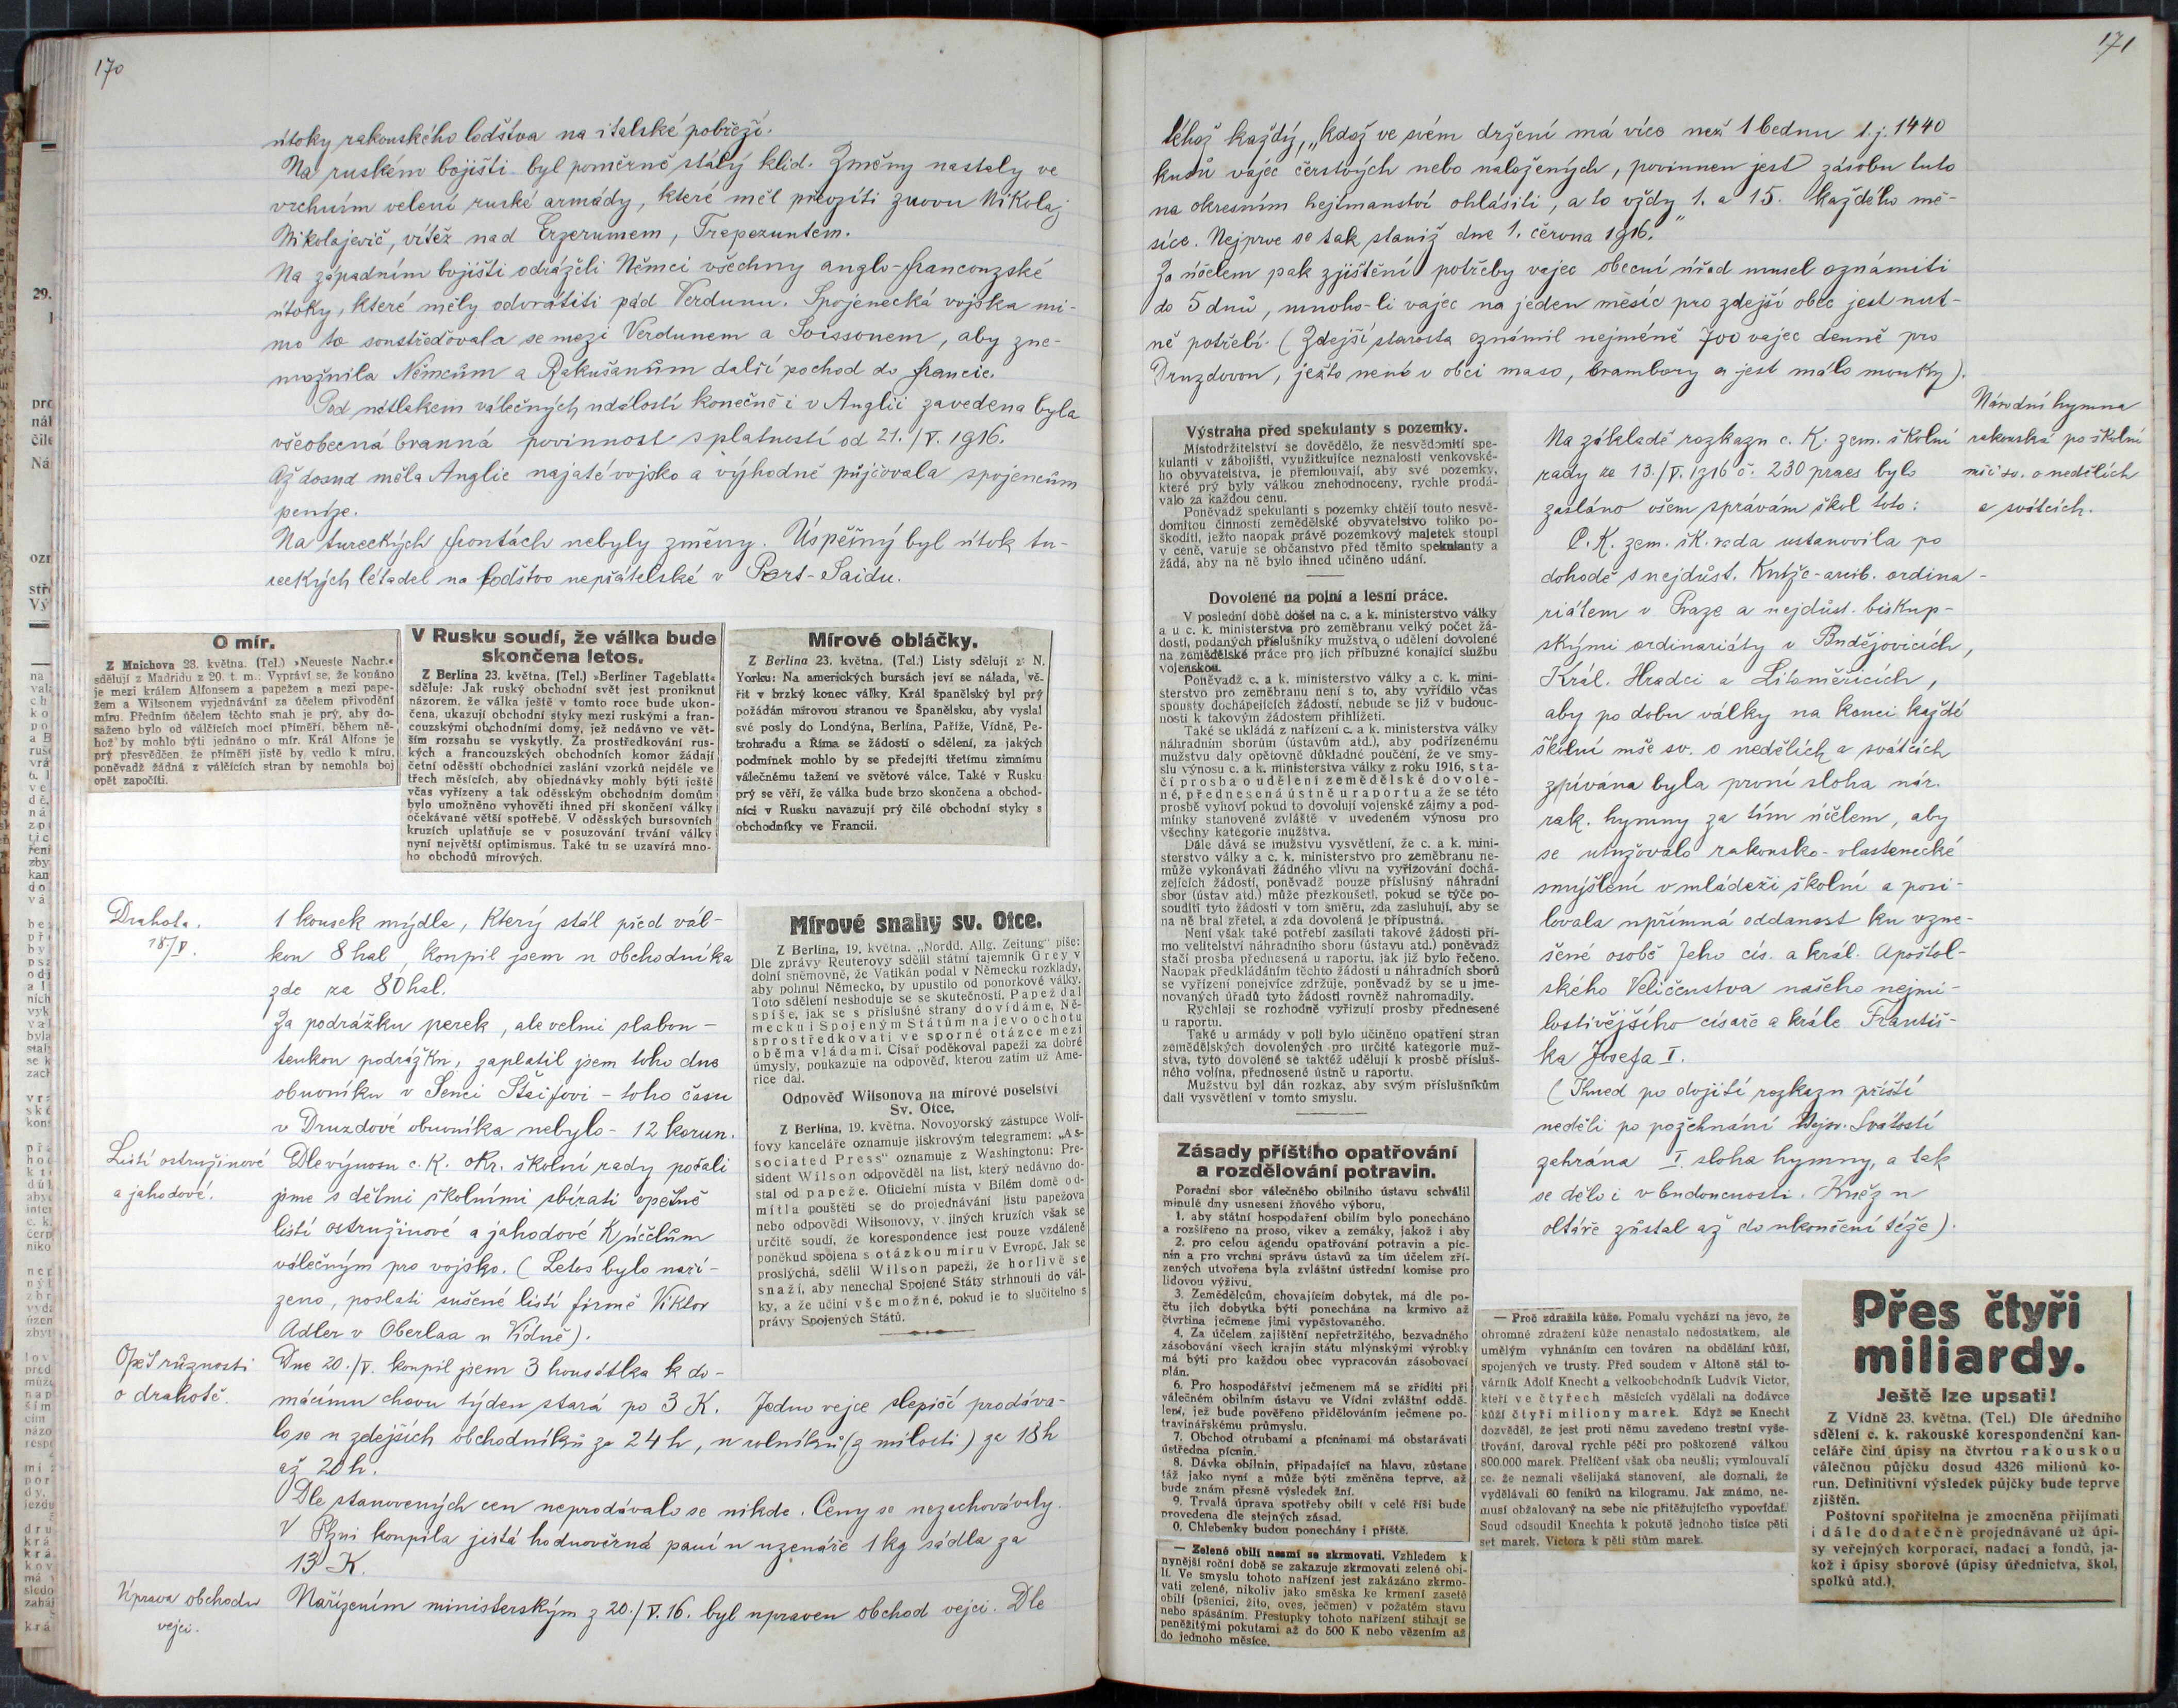 170
útoky rakouského loďstva na italské pobřeží.
Na ruském bojišti byl poměrně stálý klid. Změny nastaly ve
vrchním velení ruské armády, které měl převzíti znovu Nikolaj
Nikolajevič, vítěz nad Erzerumem, Trapezuntem.
Na západním bojišti odráželi Němci všechny anglo-francouzské
útoky, které měly odvrátiti pád Verdunu. Spojenecká vojska mi-
mo to soustřeďovala se mezi Verdunem a Soissonem, aby zne-
možnila Němcům a Rakušanům další pochod do Francie.
Pod nátlakem válečných událostí konečně i v Anglii zavedena byla
všeobecná branná povinnost s platností od 21./V. 1916.
Až dosud měla Anglie najaté vojsko a výhodně půjčovala spojencům
peníze.
Na tureckých frontách nebyly změny. Úspěšný byl útok tu-
reckých létadel na loďstvo nepřátelské v Port-Saidu.
O mír.
Z Mnichova 23. května. (Tel.) »Neueste Nachr.«
sdělují z Madridu z 20. t. m.: Vypráví se, že konáno
je mezi králem Alfonsem a papežem a mezi pape-
žem a Wilsonem vyjednávání za účelem přivodění
míru. Předním účelem těchto snah je prý, aby do-
saženo bylo od válčících mocí příměří, během ně-
hož by mohlo býti jednáno o mír. Král Alfons je
prý přesvědčen, že příměří jistě by vedlo k míru,
poněvadž žádná z válčících stran by nemohla boj
opět započíti.
V Rusku soudí, že válka bude
skončena letos.
Z Berlína 23. května. (Tel.) »Berliner Tageblatt«
sděluje: Jak ruský obchodní svět jest proniknut
názorem, že válka ještě v tomto roce bude ukon-
čena, ukazují obchodní styky mezi ruskými a fran-
couzskými obchodními domy, jež nedávno ve vět-
ším rozsahu se vyskytly. Za prostředkování rus-
kých a francouzských obchodních komor žádají
četní oděsští obchodníci zaslání vzorků nejdéle ve
třech měsících, aby objednávky mohly býti ještě
včas vyřízeny a tak oděsským obchodním domům
bylo umožněno vyhověti ihned při skončení války
očekávané větší spotřebě. V oděsských bursovních
kruzích uplatňuje se v posuzování trvání války
nyní největší optimismus. Také tu se uzavírá mno-
ho obchodů mírových.
Mírové obláčky.
Z Berlína 23. května. (Tel.) Listy sdělují z N.
Yorku: Na amerických bursách jeví se nálada, vě-
řit v brzký konec války. Král španělský byl prý
požádán mírovou stranou ve Španělsku, aby vyslal
své posly do Londýna, Berlína, Paříže, Vídně, Pe-
trohradu a Říma se žádostí o sdělení, za jakých
podmínek mohlo by se předejíti třetímu zimnímu
válečnému tažení ve světové válce. Také v Rusku
prý se věří, že válka bude brzo skončena a obchod-
níci v Rusku navazují prý čilé obchodní styky s
obchodníky ve Francii.
Drahota.
18/V.
1 kousek mýdla, který stál před vál-
kou 8 hal, koupil jsem u obchodníka
zde za 80 hal.
Za podrážku perek, ale velmi slabou -
tenkou podrážku, zaplatil jsem toho dne
obuvníku v Senci Štaifovi - toho času
v Druzdové obuvníka nebylo - 12 korun.
Listí ostružinové
a jahodové.
Dle výnosu c. k. okr. školní rady počali
jsme s dětmi školními sbírati opětně
listí ostružinové a jahodové k účelům
válečným pro vojsko. (Letos bylo naří-
zeno, poslati sušené listí firmě Viktor
Adler v Oberlaa u Vídně).
Mírové snahy sv. Otce.
Z Berlína, 19. května. „Nordd. Allg. Zeitung" píše:
Dle zprávy Reuterovy sdělil státní tajemník Grey v
dolní sněmovně, že Vatikán podal v Německu rozklady,
aby pohnul Německo, by upustilo od ponorkové války.
Toto sdělení neshoduje se se skutečností. Papež dal
spíše, jak se s příslušné strany dovídáme, Ně-
mecku i Spojeným Státům na jevo ochotu
sprostředkovati ve sporné otázce mezi
oběma vládami. Císař poděkoval papeži za dobré
úmysly, poukazuje na odpověď, kterou zatím už Ame-
rice dal.
Odpověď Wilsonova na mírové poselství
Sv. Otce.
Z Berlína, 19. května. Novoyorský zástupce Wolf-
fovy kanceláře oznamuje jiskrovým telegramem: „As-
sociated Press" oznamuje z Washingtonu: Pre-
sident Wilson odpověděl na list, který nedávno do-
stal od papeže. Oficielní místa v Bílém domě od-
mítla pouštěti se do projednávání listu papežova
nebo odpovědi Wilsonovy, v jiných kruzích však se
určitě soudí, že korespondence jest pouze vzdáleně
poněkud spojena s otázkou míru v Evropě. Jak se
proslýchá, sdělil Wilson papeži, že horlivě se
snaží, aby nenechal Spojené Státy strhnouti do vál-
ky, a že učiní vše možné, pokud je to slučitelno s
právy Spojených Států.
Opět různosti
o drahotě.
Dne 20./V. koupil jsem 3 housátka k do-
mácímu chovu týden stará po 3 K. Jedno vejce slepičí prodáva-
lo se u zdejších obchodníků za 24 h, u rolníků (z milosti) za 18 h
až 20 h.
Dle stanovených cen neprodávalo se nikde. Ceny se nezachovávaly.
V Plzni koupila jistá hodnověrná paní u uzenáře 1 kg sádla za
13 K.
Úprava obchodu
vejci.
Nařízením ministerským z 20./V. 16. byl upraven obchod vejci. Dle
171
téhož každý, „kdož ve svém držení má více než 1 bednu t. j. 1440
kusů vajec čerstvých nebo naložených, povinnen jest zásobu tuto
na okresním hejtmanství ohlásiti, a to vždy 1. a 15. každého mě-
síce. Nejprve se tak staniž dne 1. června 1916."
Za účelem pak zjištění potřeby vajec obecní úřad musel oznámiti
do 5 dnů, mnoho-li vajec na jeden měsíc pro zdejší obec jest nut-
ně potřebí. (Zdejší starosta oznámil nejméně 700 vajec denně pro
Druzdovou, ježto není v obci maso, brambory a jest málo mouky).
Výstraha před spekulanty s pozemky.
Místodržitelství se dovědělo, že nesvědomití spe-
kulanti v zábojišti, využitkujíce neznalosti venkovské-
ho obyvatelstva, je přemlouvají, aby své pozemky,
které prý byly válkou znehodnoceny, rychle prodá-
valo za každou cenu.
Poněvadž spekulanti s pozemky chtějí touto nesvě-
domitou činností zemědělské obyvatelstvo toliko po-
škoditi, ježto naopak právě pozemkový majetek stoupl
v ceně, varuje se občanstvo před těmito spekulanty a
žádá, aby na ně bylo ihned učiněno udání.
Dovolené na polní a lesní práce.
V poslední době došel na c. a k. ministerstvo války
a u c. k. ministerstva pro zeměbranu velký počet žá-
dostí, podaných příslušníky mužstva o udělení dovolené
na zemědělské práce pro jich příbuzné konající službu
vojenskou.
Poněvadž c. a k. ministerstvo války a c. k. mini-
sterstvo pro zeměbranu není s to, aby vyřídilo včas
spousty docházejících žádostí, nebude se již v budouc-
nosti k takovým žádostem přihlížeti.
Také se ukládá z nařízení c. a k. ministerstva války
náhradním sborům (ústavům atd.), aby podřízenému
mužstvu daly opětovně důkladné poučení, že ve smy-
slu výnosu c. a k. ministerstva války z roku 1916, sta-
čí prosba o udělení zemědělské dovole-
né, přednesená ústně u raportu a že se této
prosbě vyhoví pokud to dovolují vojenské zájmy a pod-
mínky stanovené zvláště v uvedeném výnosu pro
všechny kategorie mužstva.
Dále dává se mužstvu vysvětlení, že c. a k. mini-
sterstvo války a c. k. ministerstvo pro zeměbranu ne-
může vykonávati žádného vlivu na vyřizování dochá-
zejících žádostí, poněvadž pouze příslušný náhradní
sbor (ústav atd.) může přezkoušeti, pokud se týče po-
souditi tyto žádosti v tom směru, zda zasluhují, aby se
na ně bral zřetel, a zda dovolená je přípustná.
Není však také potřebí zasílati takové žádosti pří-
mo velitelství náhradního sboru (ústavu atd.) poněvadž
stačí prosba přednesená u raportu, jak již bylo řečeno.
Naopak předkládáním těchto žádostí u náhradních sborů
se vyřízení ponejvíce zdržuje, poněvadž by se u jme-
novaných úřadů tyto žádosti rovněž nahromadily.
Rychleji se rozhodně vyřizují prosby přednesené
u raportu.
Také u armády v poli bylo učiněno opatření stran
zemědělských dovolených pro určité kategorie muž-
stva, tyto dovolené se taktéž udělují k prosbě přísluš-
ného vojína, přednesené ústně u raportu.
Mužstvu byl dán rozkaz, aby svým příslušníkům
dali vysvětlení v tomto smyslu.
Národní hymna
rakouská po školní
mši sv. o nedělích
a svátcích.
Na základě rozkazu c. k. zem. školní
rady ze 13./V. 1916 č. 230 praes bylo
zasláno všem správám škol toto:
C. k. zem. šk. rada ustanovila po
dohodě s nejdůst. kníže-arcib. ordina-
riátem v Praze a nejdůst. biskup-
skými ordinariáty v Budějovicích,
Král. Hradci a Litoměřicích,
aby po dobu války na konci každé
školní mše sv. o nedělích a svátcích
zpívána byla první sloha nár.
rak. hymny za tím účelem, aby
se utužovalo rakousko-vlastenecké
smýšlení v mládeži školní a posi-
lovala upřímná oddanost ku vzne-
šené osobě Jeho cís. a král. Apoštol-
ského Veličenstva našeho nejmi-
lostivějšího císaře a krále Františ-
ka Josefa I.
(Ihned po dojití rozkazu příští
neděli po požehnání Nejsv. Svátostí
zahrána I. sloha hymny, a tak
se dělo i v budoucnosti. Kněz u
oltáře zůstal až do ukončení téže).
Zásady příštího opatřování
a rozdělování potravin.
Poradní sbor válečného obilního ústavu schválil
minulé dny usnesení žňového výboru,
1. aby státní hospodaření obilím bylo ponecháno
a rozšířeno na proso, vikev a zemáky, jakož i aby
2. pro celou agendu opatřování potravin a píc-
nin a pro vrchní správu ústavů za tím účelem zří-
zených utvořena byla zvláštní ústřední komise pro
lidovou výživu.
3. Zemědělcům, chovajícím dobytek, má dle po-
čtu jich dobytka býti ponechána na krmivo až
čtvrtina ječmene jimi vypěstovaného.
4. Za účelem zajištění nepřetržitého, bezvadného
zásobování všech krajin státu mlýnskými výrobky
má býti pro každou obec vypracován zásobovací
plán.
6. Pro hospodářství ječmenem má se zříditi při
válečném obilním ústavu ve Vídni zvláštní oddě-
lení, jež bude pověřeno přidělováním ječmene po-
travinářskému průmyslu.
7. Obchod otrubami a pícninami má obstarávati
ústředna pícnin.
8. Dávka obilnin, připadající na hlavu, zůstane
táž jako nyní a může býti změněna teprve, až
bude znám přesně výsledek žní.
9. Trvalá úprava spotřeby obilí v celé říši bude
provedena dle stejných zásad.
0. Chlebenky budou ponechány i příště.
— Zelené obilí nesmí se zkrmovati. Vzhledem k
nynější roční době se zakazuje zkrmovati zelené obi-
lí. Ve smyslu tohoto nařízení jest zakázáno zkrmo-
vati zeleně, nikoliv jako směska ke krmení zaseté
obilí (pšenici, žito, oves, ječmen) v požatém stavu
nebo spásáním. Přestupky tohoto nařízení stihají se
peněžitými pokutami až do 500 K nebo vězením až
do jednoho měsíce.
— Proč zdražila kůže. Pomalu vychází na jevo, že
ohromné zdražení kůže nenastalo nedostatkem, ale
umělým vyhnáním cen továren na obdělání kůží,
spojených ve trusty. Před soudem v Altoně stál to-
várník Adolf Knecht a velkoobchodník Ludvík Victor,
kteří ve čtyřech měsících vydělali na dodávce
kůží čtyři miliony marek. Když se Knecht
dozvěděl, že jest proti němu zavedeno trestní vyše-
třování, daroval rychle péči pro poškozené válkou
800.000 marek. Přelíčení však oba neušli; vymlouvali
se, že neznali všelijaká stanovení, ale doznali, že
vydělávali 60 feniků na kilogramu. Jak známo, ne-
musí obžalovaný na sebe nic přitěžujícího vypovídat.
Soud odsoudil Knechta k pokutě jednoho tisíce pěti
set marek, Victora k pěti stům marek.
Přes čtyři
miliardy.
Ještě lze upsati!
Z Vídně 23. května. (Tel.) Dle úředního
sdělení c. k. rakouské korespondenční kan-
celáře činí úpisy na čtvrtou rakouskou
válečnou půjčku dosud 4326 milionů ko-
run. Definitivní výsledek půjčky bude teprve
zjištěn.
Poštovní spořitelna je zmocněna přijímati
i dále dodatečně projednávané už úpi-
sy veřejných korporací, nadací a fondů, ja-
kož i úpisy sborové (úpisy úřednictva, škol,
spolků atd.).